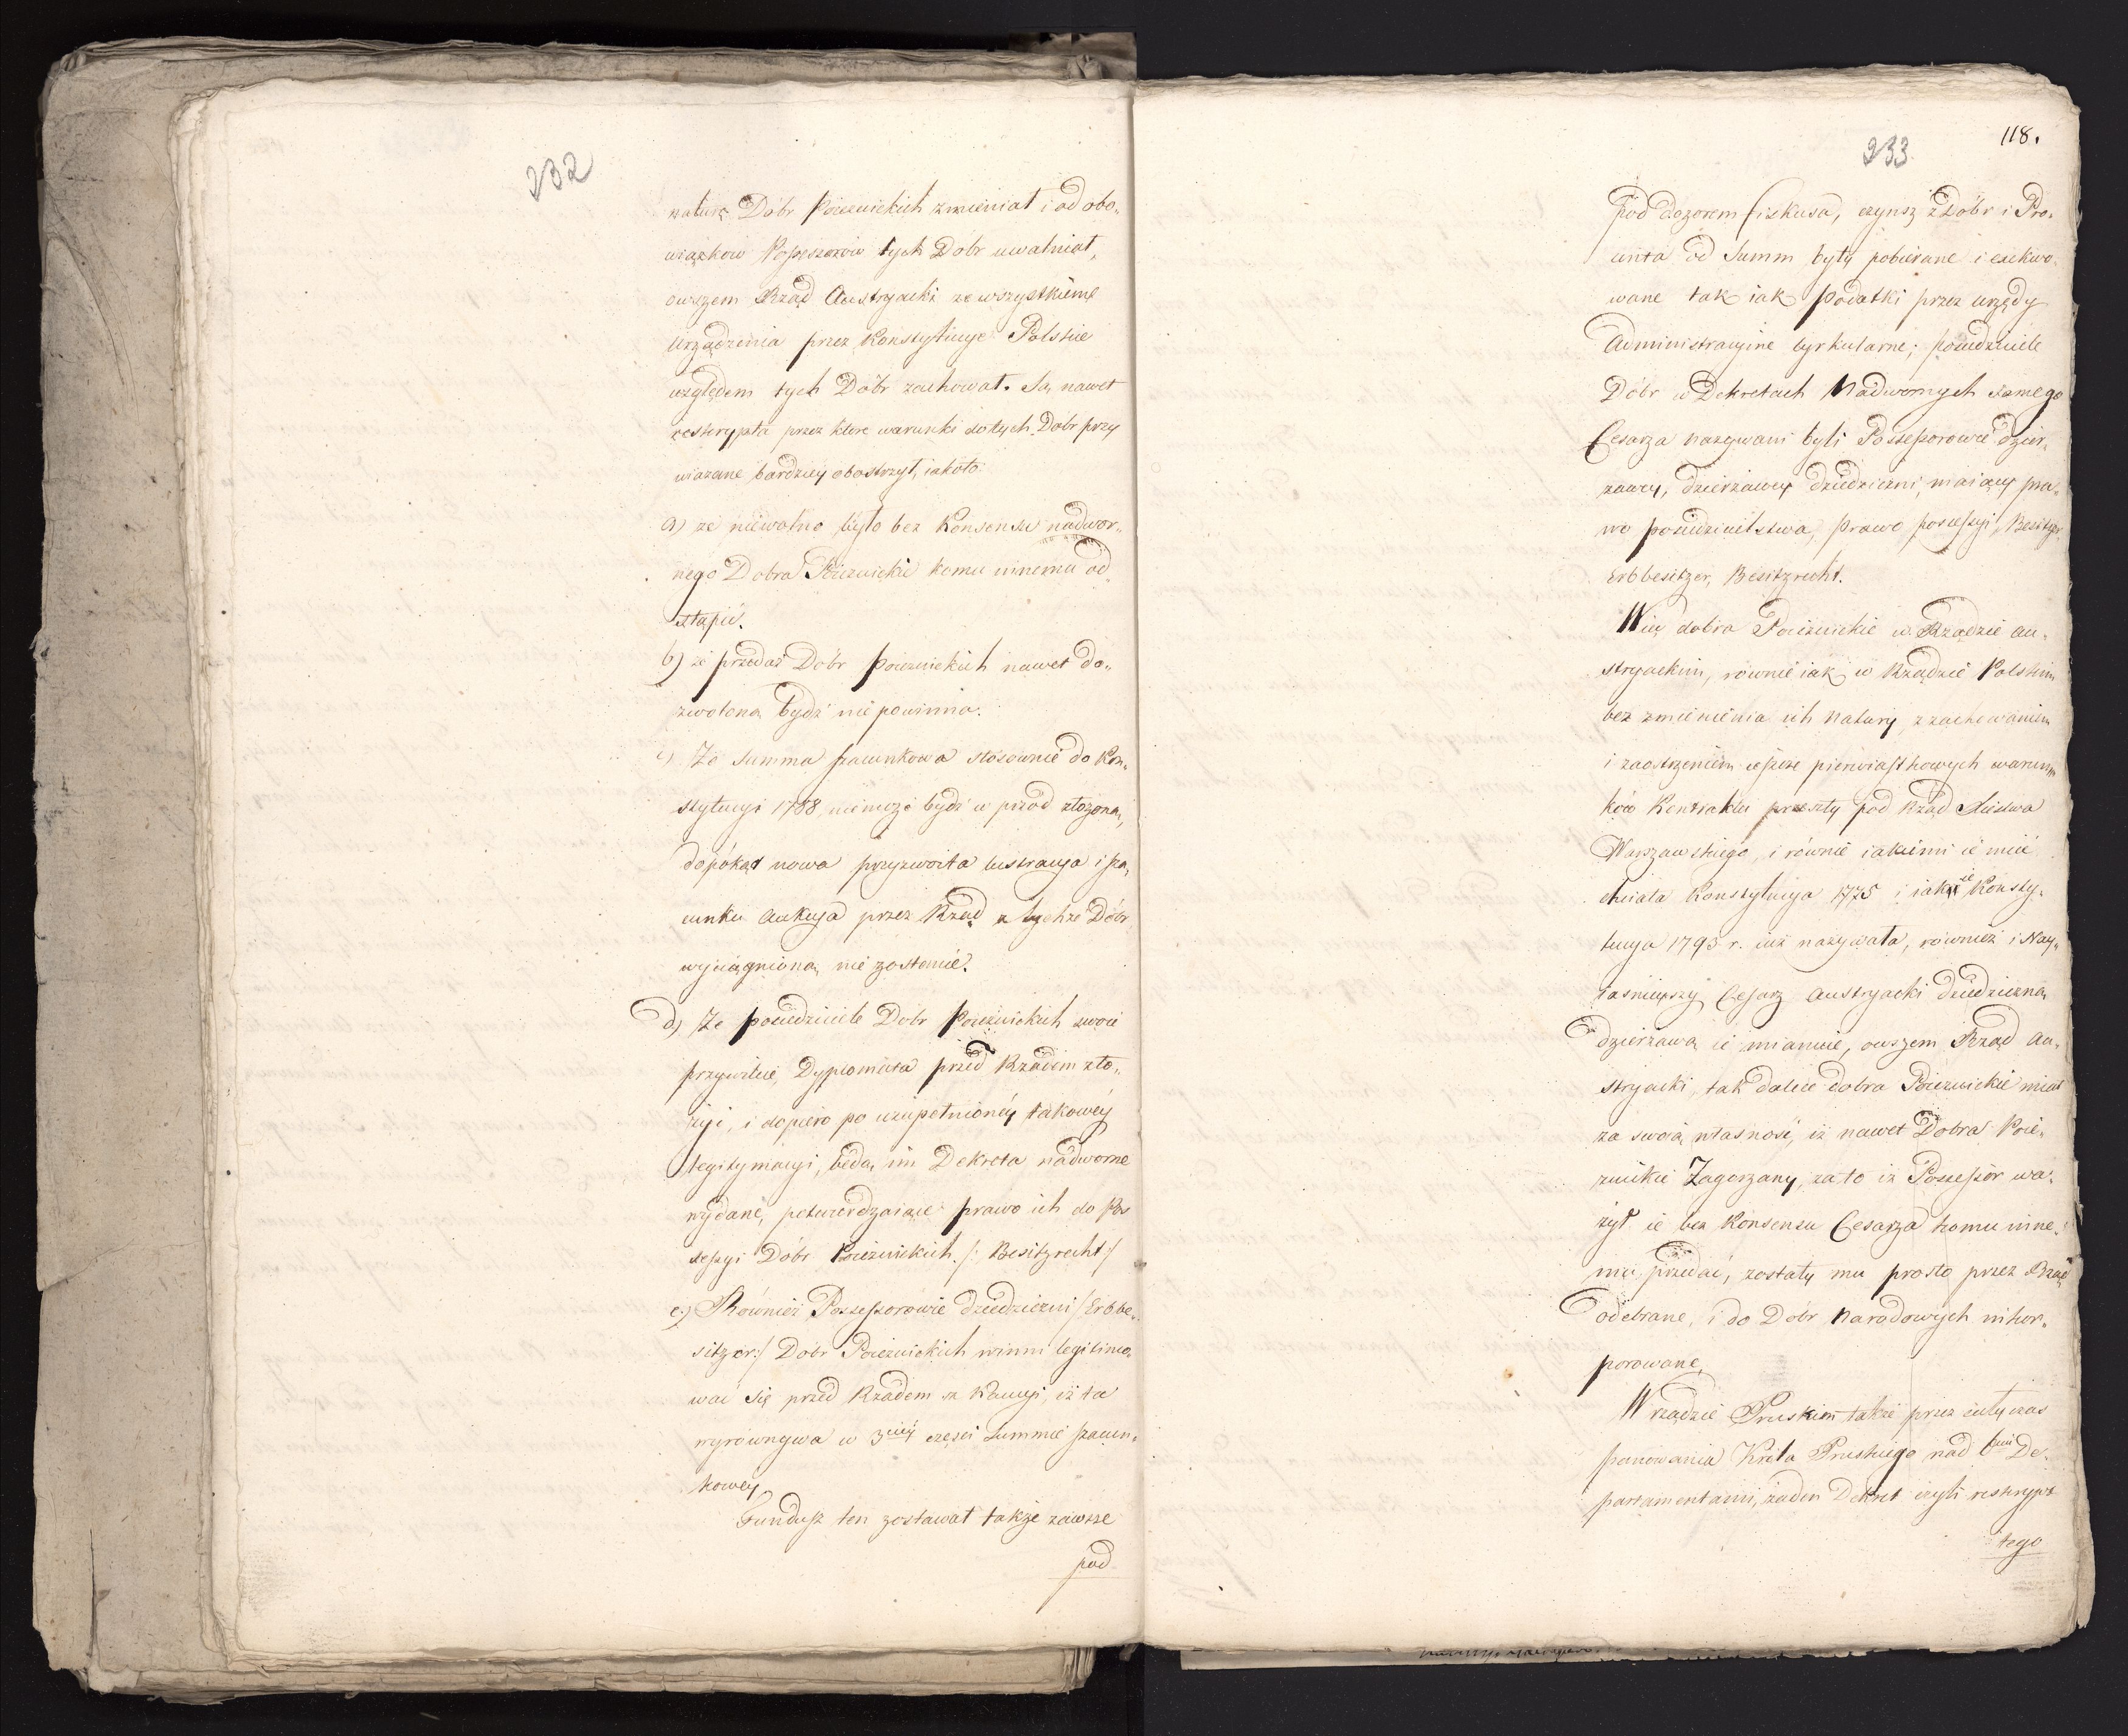 232
naturę Dobr Poiezuickich zmieniał i od obo„
wiązkow Possessorow tych Dobr uwalniał,
owszem Rząd Austryacki ze wszystkiemi
Urządzenia przez Konstytucye Polskie
względem tych Dobr zachował. Są nawet
reskrypta przez ktore warunki do tych Dobr przy
wiazane bardziey obostrzył, iakoto:
a) że niewolno było bez Konsensu nadwor„
nego Dobra Poiezuickie komu innemu od„
stąpić.
b) że przedaż Dobr poiezuickich nawet do„
zwolona bydź nie powinna.
c) Że summa szacunkowa stosownie do Kon„
stytucyi 1788 niemoże bydź w przod złożona,
dopókąd nowa przyzwoita lustracya i sza„
cunku aukcya przez Rząd z tychże Dóbr
wyciągniona nie zostanie.
d) Że posiedziciele Dobr Poiezuickich swoie
przywileie, Dyplomata przed Rządem zło„
żyi, i dopiero po uzupełnioney takowéy
legitymacyi, będą im Dekreta nadworne
wydane, potwierdzaiące prawo ich do Pos
sessyi Dobr Poiezuickich /: Besitzrecht :/
e) Również Possessorowie dziedziczni /: Erbbe„
sitzer :/ Dobr Poiezuickich winni legitimo„
wać się przed Rządem z Kaucyi, iż ta
wyrownywa w 3ciéy części Summie szacun„
kowey
Fundusz ten zostawał także zawsze
pod
118.
233
pod dozorem Fiskusa, czynsz z Dóbr i Pro„
centa od Summ były pobierane i exekwo„
wane tak iak podatki przez urzędy
Administracyine cyrkularne; posiedziciele
Dóbr w Dekretach Nadwornych samego
Cesarza nazywani byli Possessorowie dzier„
zawcy, dzierżawcy dziedziczni, maiący pra„
wo posiedzicielstwa, prawo possessyi, Besitzer,
Erbbesitzer, Besitzrecht.
Więc dobra Poiezuickie w Rządzie au„
stryackim, rownie iak w Rządzie Polskim
bez zmienienia ich natury, z zachowaniem
i zaostrzeniem ieszcze pierwiastkowych warun„
ków Kontraktu przeszły pod Rząd Xięstwa
Warszawskiego, i równie iakiemi ie mieć
chciała Konstytucya 1775 i iak ie Konsty„
tucya 1793 r. iuż nazywała, również i Nay„
iaśnieyszy Cesarz Austryacki dziedziczną
dzierżawą ie mianuie, owszem Rząd Au„
stryacki, tak dalece dobra Poiezuickie miał
za swoią własność, iż nawet Dobra Poie„
zuickie Zagorzany, za to iż Possessor wa„
żył ie bez Konsensu Cesarza komu inne„
mu przedać, zostały mu prosto przez Rząd
odebrane, i do Dóbr Narodowych inkor„
porowane,
W rządzie Pruskim także przez cały czas
panowania Króla Pruskiego nad 6ciu De„
partamentami, żaden Dekret czyli reskrypt
tego